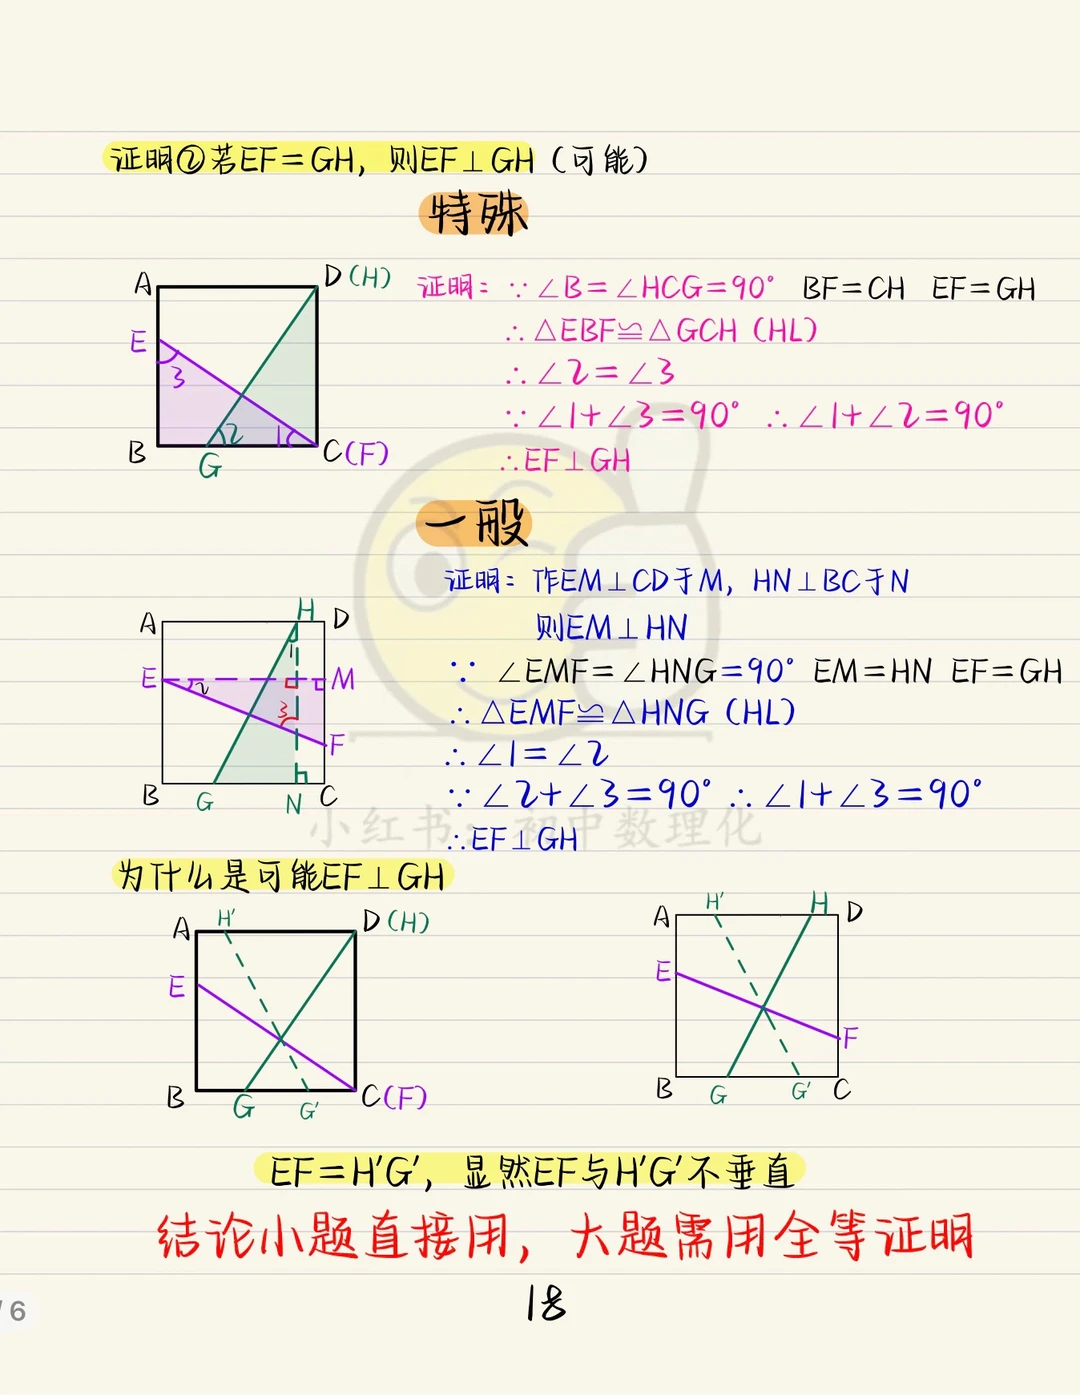 证明②若EF=GH，则EF⊥GH（可能）
特殊
A
D(H)
E
3
2
1
B
G
C(F)
证明：∵∠B=∠HCG=90° BF=CH EF=GH
∴△EBF≌△GCH（HL）
∴∠2=∠3
∵∠1+∠3=90° ∴∠1+∠2=90°
∴EF⊥GH
一般
A
H
D
1
E
2
M
3
F
B
G
N
C
证明：作EM⊥CD于M，HN⊥BC于N
则EM⊥HN
∵ ∠EMF=∠HNG=90° EM=HN EF=GH
∴△EMF≌△HNG（HL）
∴∠1=∠2
∵∠2+∠3=90° ∴∠1+∠3=90°
∴EF⊥GH
小红书：初中数理化
为什么是可能EF⊥GH
A
H'
D(H)
E
B
G
G'
C(F)
A
H'
H
D
E
F
B
G
G'
C
EF=H'G'，显然EF与H'G'不垂直
结论小题直接用，大题需用全等证明
18
/6